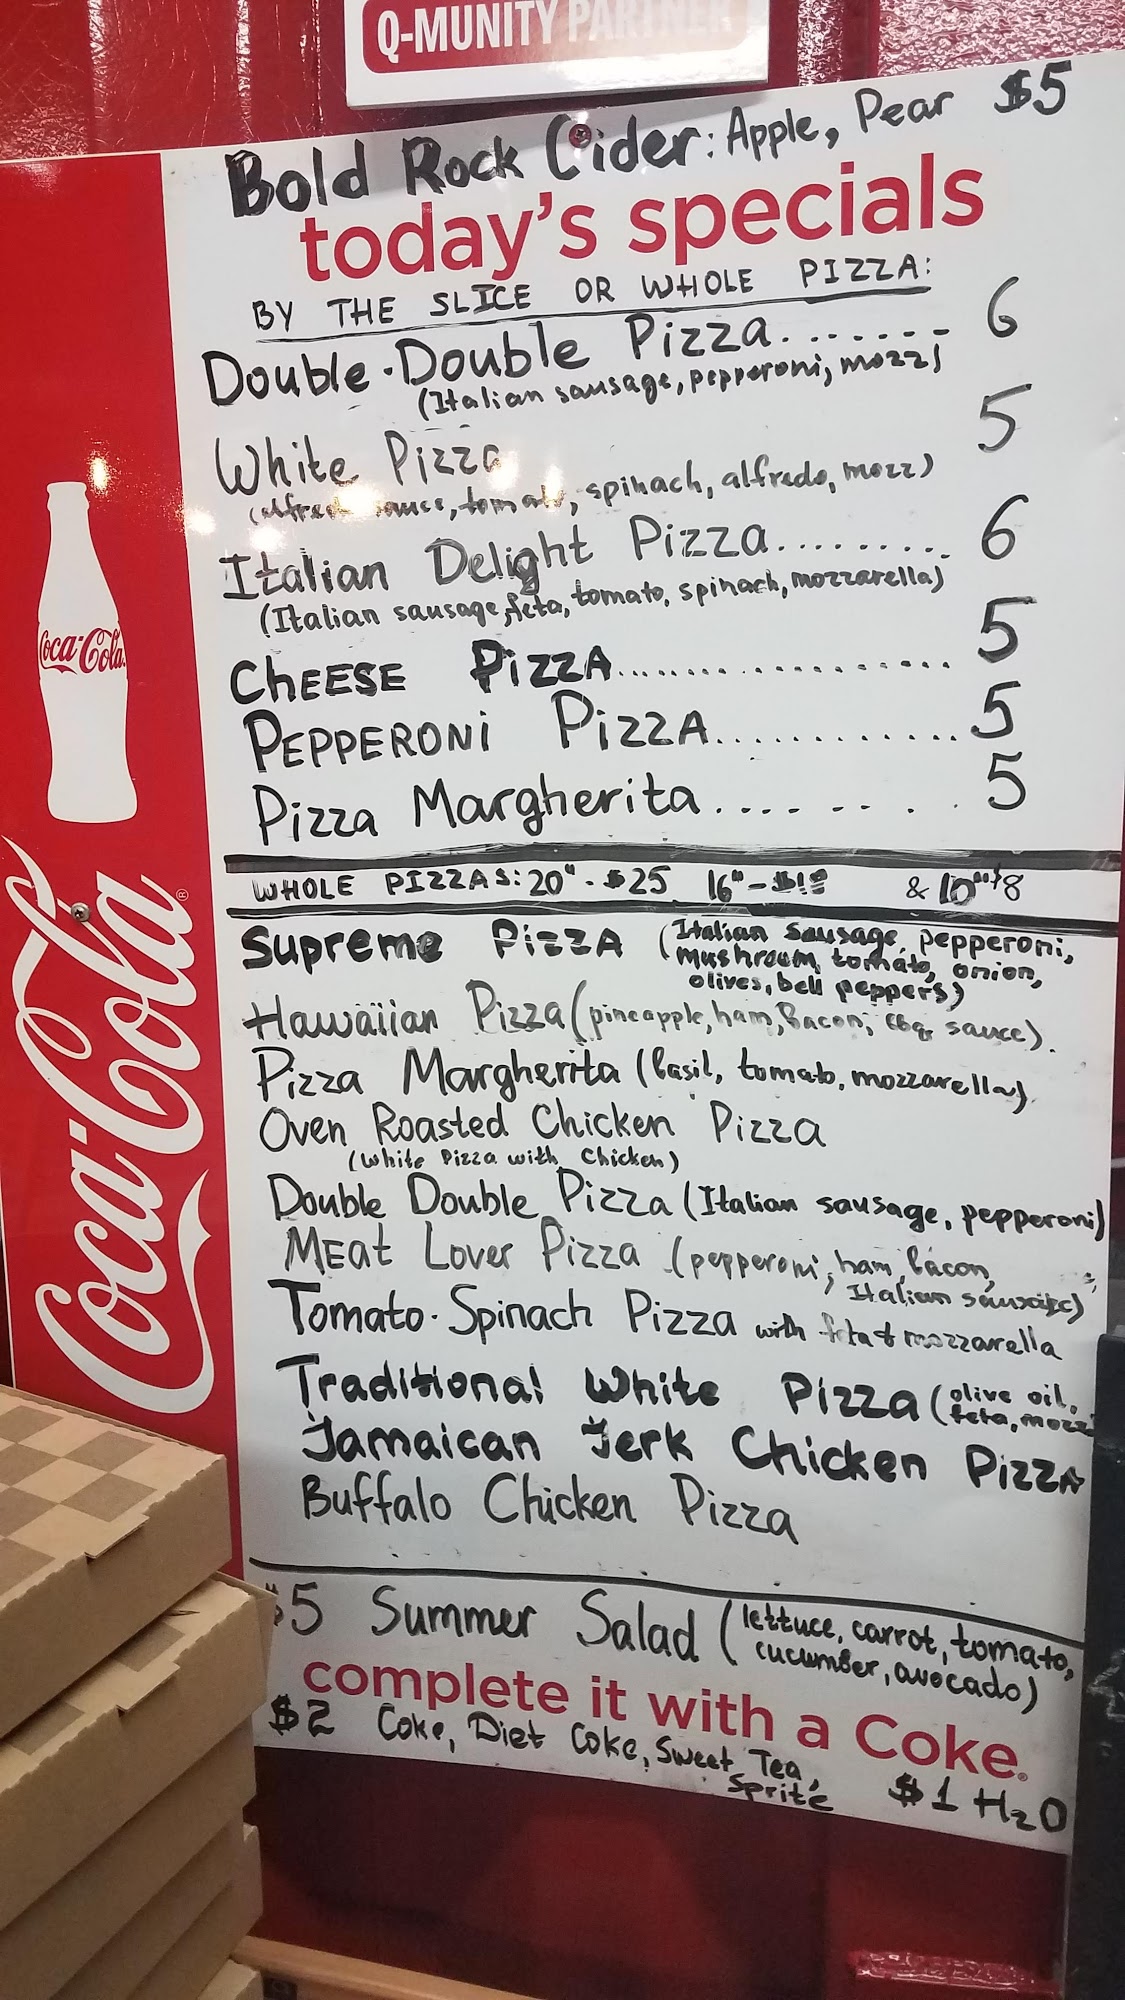 Q-MUNITY PARTNER
Bold Rock Cider: Apple, Pear $5
today's specials
BY THE SLICE OR WHOLE PIZZA:
Double-Double Pizza....... 6
(Italian sausage, pepperoni, mozz)
White Pizza 5
(alfredo sauce, tomato, spinach, alfredo, mozz)
Italian Delight Pizza......... 6
(Italian sausage, feta, tomato, spinach, mozzarella)
CHEESE PIZZA................... 5
PEPPERONI PIZZA............. 5
Pizza Margherita........ 5
WHOLE PIZZAS: 20" - $25 16" - & 10" $8
Supreme PIZZA (Italian sausage, pepperoni,
mushroom, tomato, onion,
olives, bell peppers)
Hawaiian Pizza (pineapple, ham, bacon, bbq sauce).
Pizza Margherita (basil, tomato, mozzarella)
Oven Roasted Chicken Pizza
(White Pizza with Chicken)
Double Double Pizza (Italian sausage, pepperoni)
MEat Lover Pizza (pepperoni, ham, bacon,
Italian sausage)
Tomato-Spinach Pizza with feta & mozzarella
Traditional White Pizza (olive oil,
feta, mozz
Jamaican Jerk Chicken Pizza
Buffalo Chicken Pizza
$5 Summer Salad (lettuce, carrot, tomato,
cucumber, avocado)
complete it with a Coke®
$2 Coke, Diet Coke, Sweet Tea,
Sprite $1 H2O
Coca-Cola
Coca-Cola®